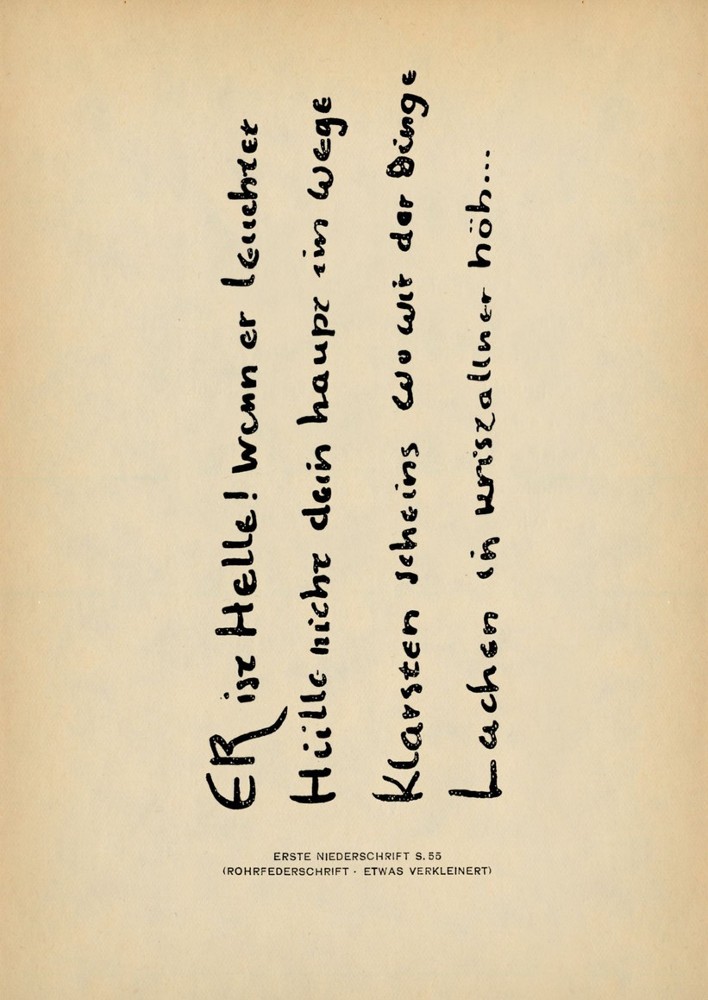 ER ist Helle! wenn er leuchtet
Hülle nicht dein haupt im wege
Klarsten scheins wo wir der Dinge
Lachen in kristallner höh...
ERSTE NIEDERSCHRIFT S. 55
(ROHRFEDERSCHRIFT · ETWAS VERKLEINERT)